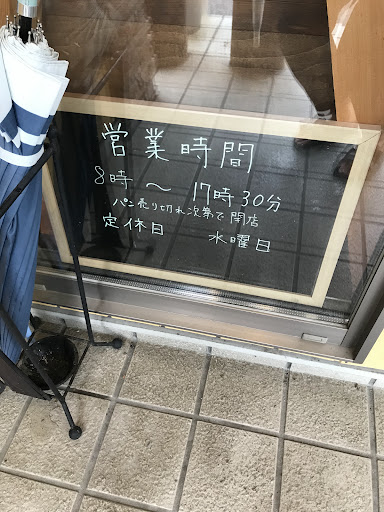 営業時間
8時 〜 17時30分
パン売り切れ次第で閉店
定休日 水曜日